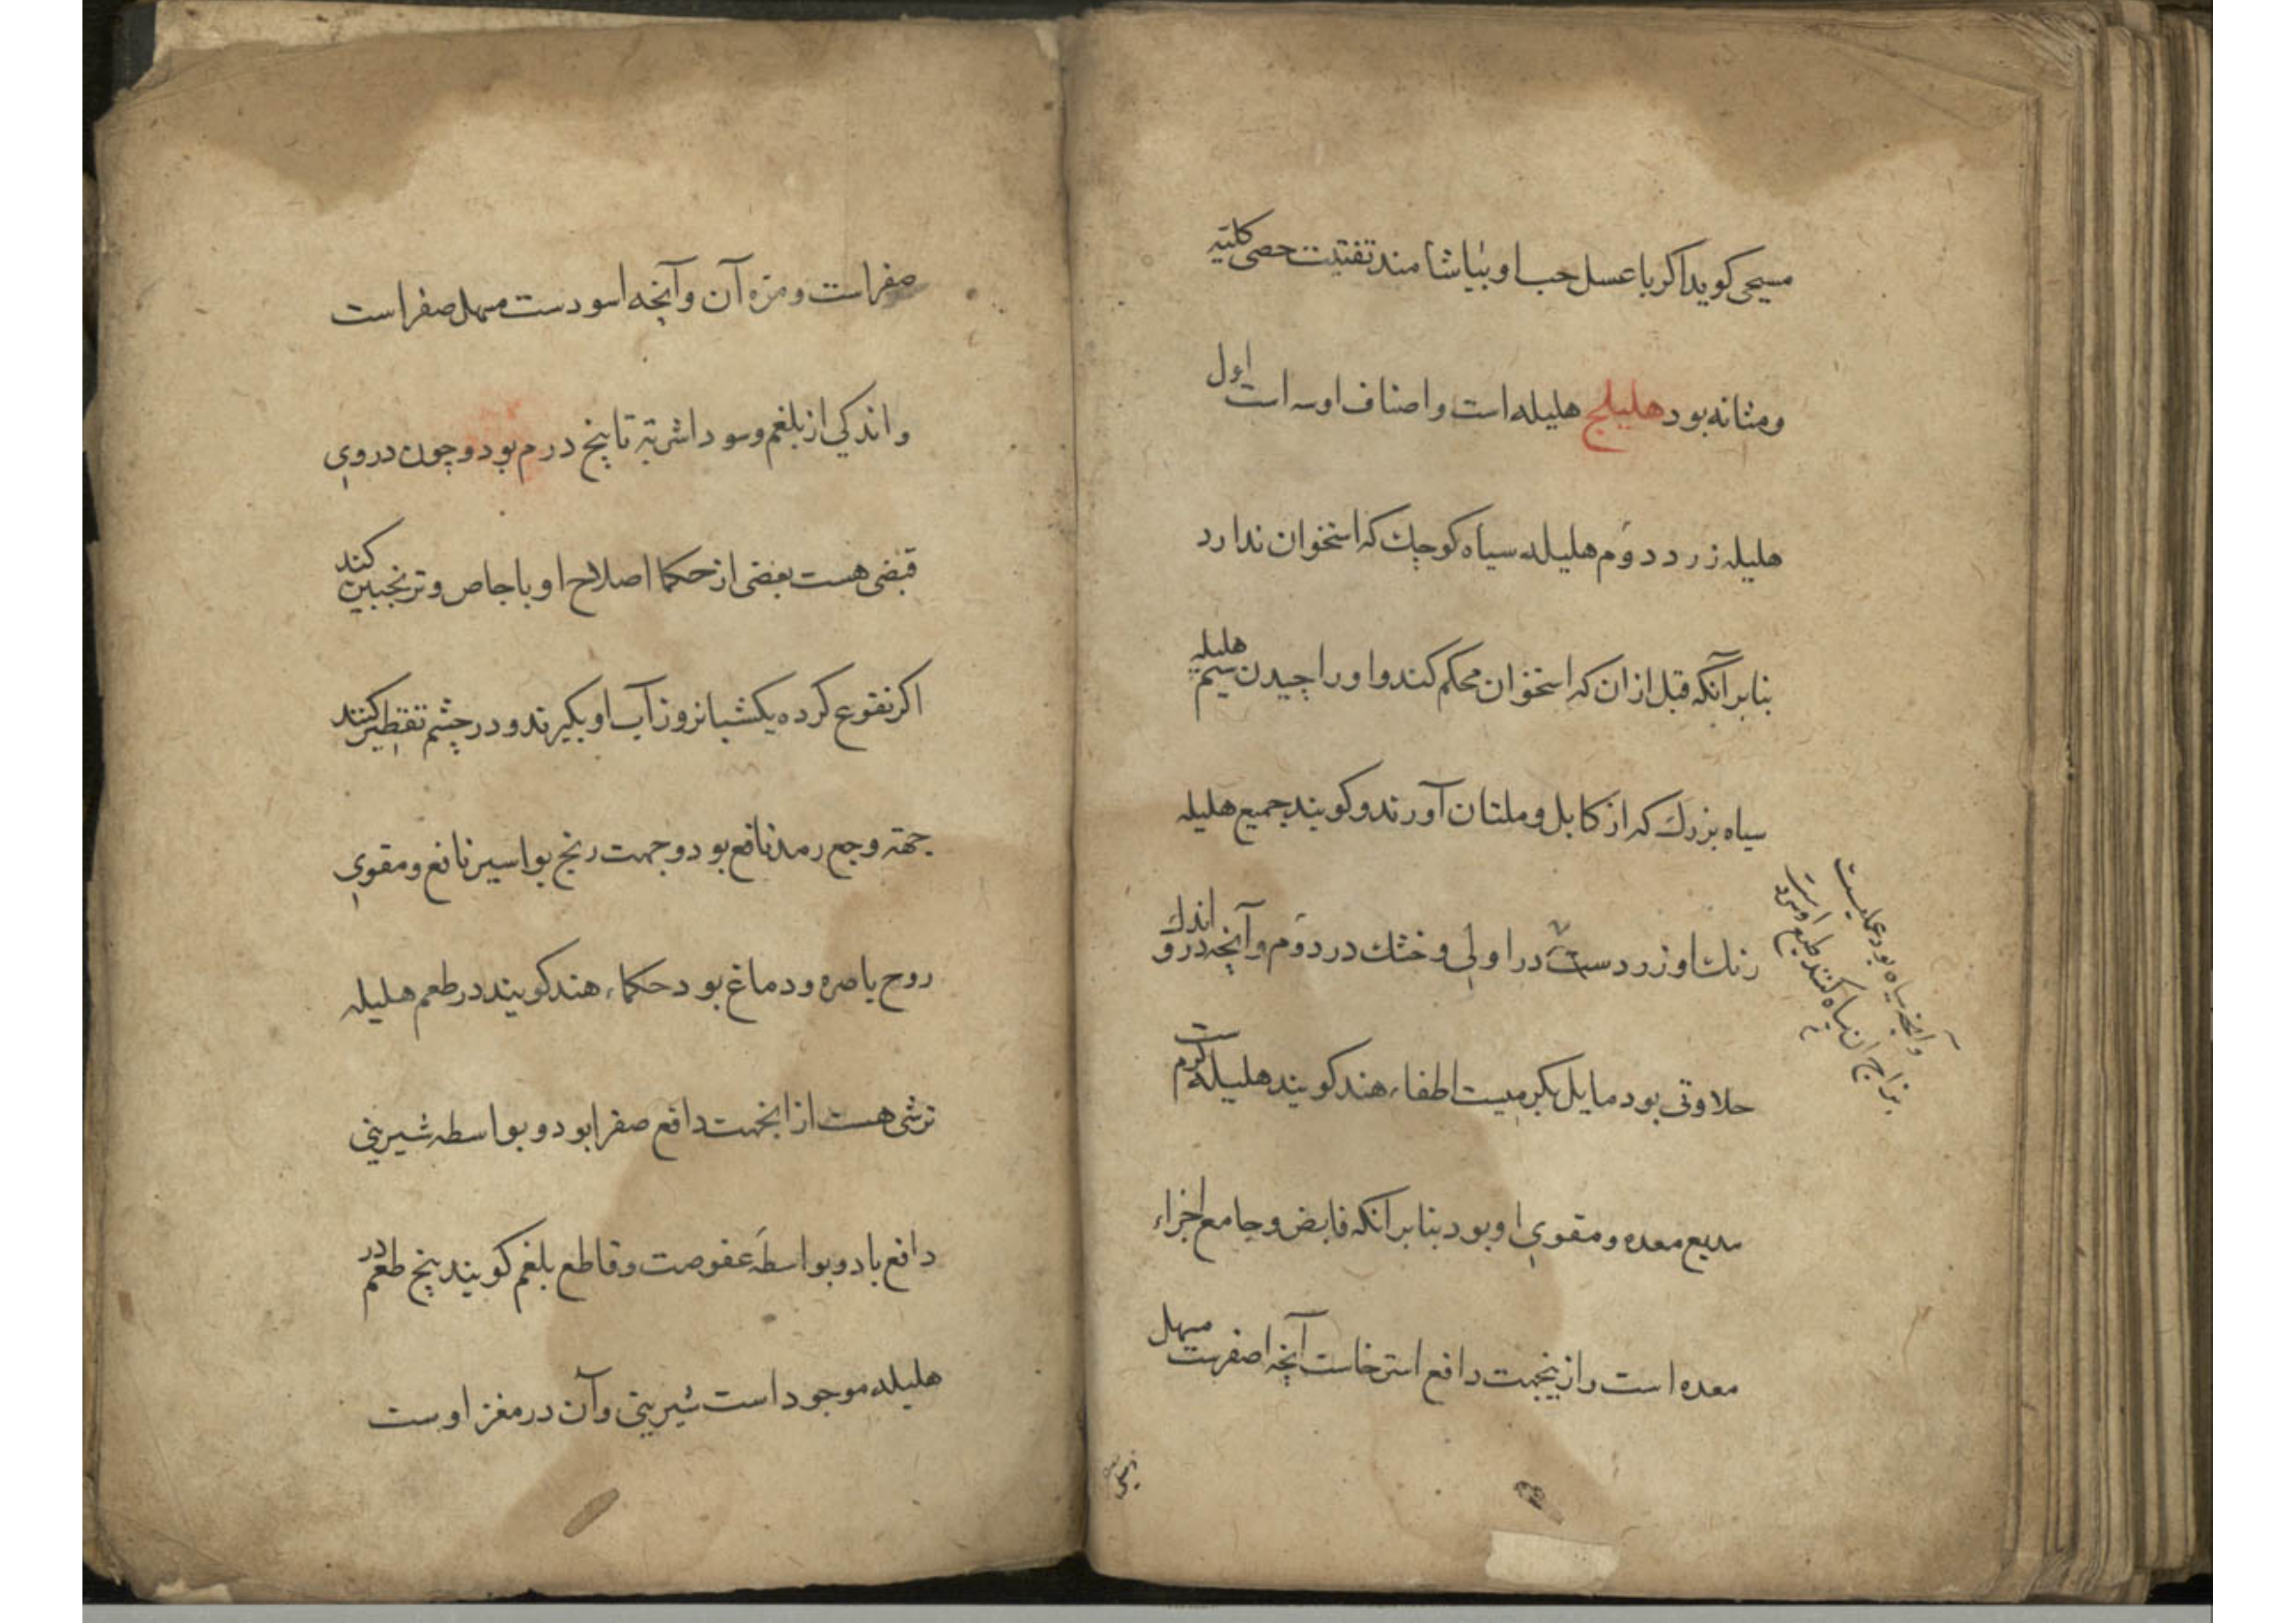 مسیحی کوید اکر با عسل حب او بیاشامند تفتیت حصی کلیه
و مثانه بود هلیلج هلیله است و اصناف او سه است اول
هلیله زرد دوم هلیله سیاه کوچك که استخوان ندارد
بنابر آنکه قبل از ان که استخوان محکم کند او را چیدن سیم هلیله
سیاه بزرك که از کابل و ملتان آورند و کویند جمیع هلیله
رنك او زردست در اولی و خشك در دوم و آنچه درو اندك
حلاوتی بود مایل بکرمیست اطفاء هند کویند هلیله کرم ست
معده و مقوی او بود بنابر آنکه قابض و جامع اجزاء
معده است و ازینجهت دافع استرخاست آنچه اصفرست مسهل
وآنچه سیاه بود
صفراست و مزه آن و آنچه اسودست مسهل صفراست
و اندکی از بلغم و سودا شربته تا پنج درم بود و چون در وی
قبضی هست بعضی از حکما اصلاح او با جاص و ترنجبین کند
اکر نقوع کرده یکشبانروز آب او بکیرند و در چشم تقطیر کنند
جهته وجع رمد نافع بود و جهت رنج بواسیر نافع و مقوی
روح باصره و دماغ بود حکماء هند کویند در طعم هلیله
ترشی هست از انجهت دافع صفرا بود و بواسطه شیرینی
دافع باد و بواسطه عفوصت و قاطع بلغم کویند پنج طعم در
هلیله موجود است شیرینی و آن در مغز اوست